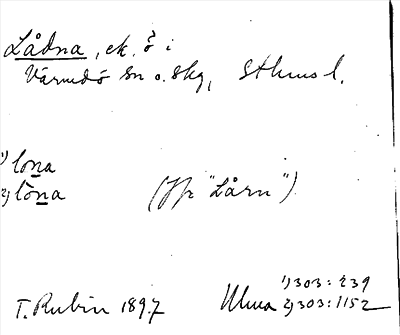 Lådna, ek. ö i
Värmdö sn o. skg, Sthms l.
1) lona
2) lòna (jfr "Lårn")
T. Rubin 1897 Ulma 1) 303:239
2) 303:1152